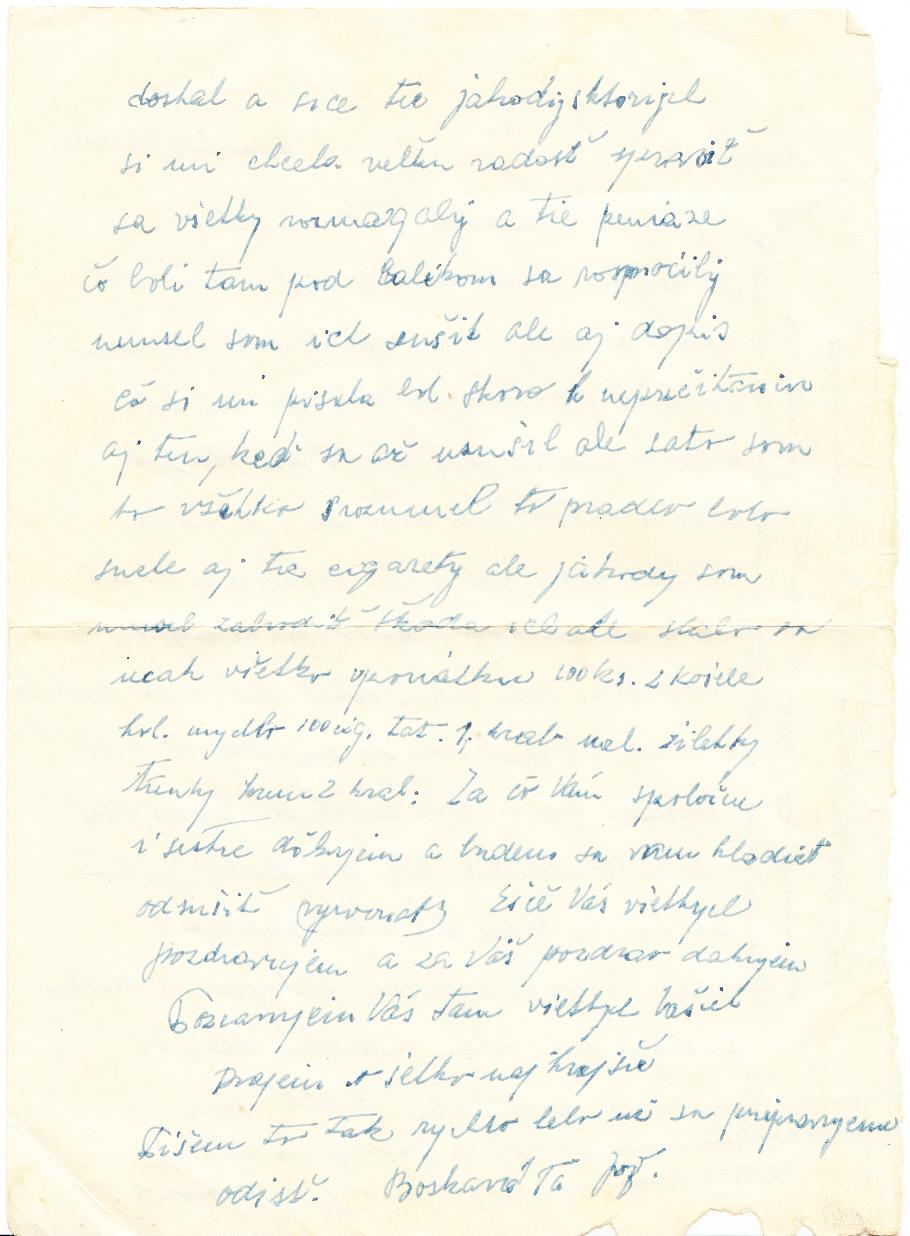 dostal a sice tie jahody s ktorých
si mi chcela velku radosť spraviť
sa všetky rozmazgaly a tie peniaze
čo boli tam pod balíkom sa rospočily
musel som ich sušit ale aj dopis
čo si mi pisala bol skoro k neprečitaniu
aj ten, keď sa až usušil ale zato som
to všetko srozumel to pradlo bolo
suche aj tie cigarety ale jahody som
musel zahodiť škoda ich ale stalo sa
ucah všetko vporiatku 100 ks. 2 košele
hol. mydlo 100 cig. tat. 1. krab ziletky
trenky 2 krab: Za čo Vám spoločne
i sestre ďakujem a budem sa vam hladieť
odsušiť Ešče Vás všetkych
pozdravujem a za Váš pozdrav dakujem
Pozdravujem Vás tam všetkych
Prajem všetko najkrajšie
Píšem to tak rychlo lebo už sa pripravujeme
odísť. Boskava Ťa Jož.